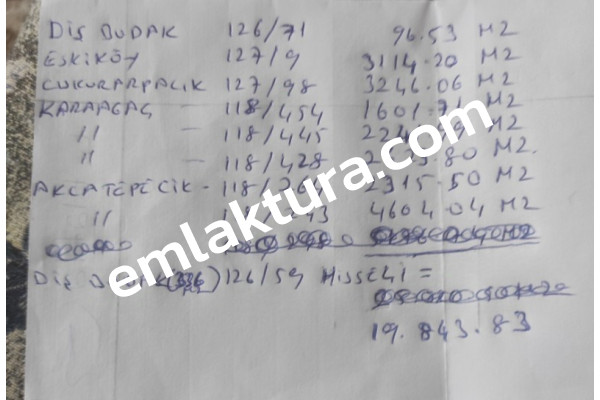 DİŞ BUDAK 126/71 96.53 M2
ESKİKÖY 127/9 3114.20 M2
ÇUKURARPALIK 127/98 3246.06 M2
KARAAGAÇ 118/454 1601.71 M2
" - 118/445 M2
" - 118/428 80 M2.
AKCATEPECİK - 118/ 2315.50 M2
" 4604.04 M2
DİŞ 126/59 HİSSELİ =
19.843.83
emlaktura.com